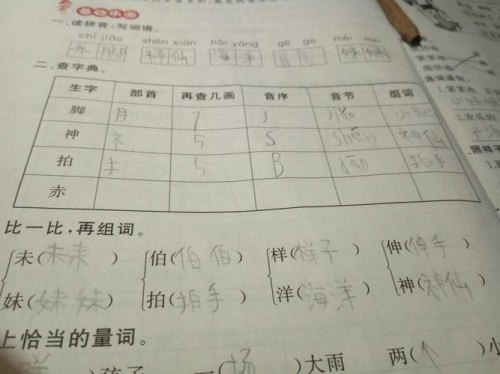 一、读拼音,写词语。
chì jiǎo shén xiān hǎi yáng gē ge mèi mei
赤脚 神仙 海洋 妹妹
二、查字典。
生字 部首 再查几画 音序 音节 组词
脚 月 7 J jiǎo
神 礻 5 S shén 神仙
拍 扌 5 拍手
赤
比一比,再组词。
未(未来) 伯(伯伯) 样(样子) 伸(伸手)
妹(妹妹) 拍(拍手) 洋(海洋) 神(神仙)
上恰当的量词。
)孩子 一(场)大雨 两(个)小